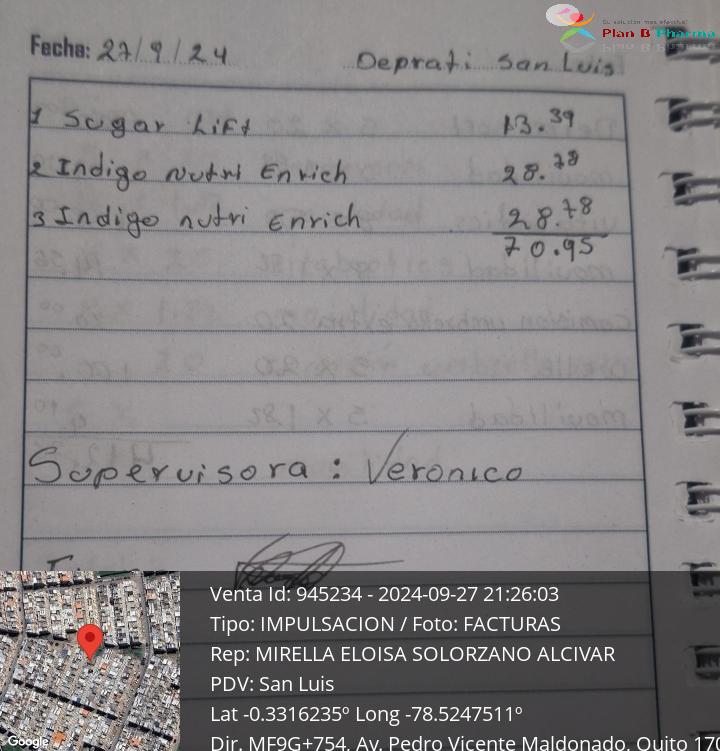 Su solucion mas efectiva!
Plan B Pharma
Fecha: 27/9/24 Deprati San Luis
1 Sugar Lift 13.39
2 Indigo Nutri Enrich 28.78
3 Indigo nutri Enrich 28.78
70.95
Supervisora: Veronica
Venta Id: 945234 - 2024-09-27 21:26:03
Tipo: IMPULSACION / Foto: FACTURAS
Rep: MIRELLA ELOISA SOLORZANO ALCIVAR
PDV: San Luis
Lat -0.3316235º Long -78.5247511º
Dir. MF9G+754, Av. Pedro Vicente Maldonado, Quito 170
Google